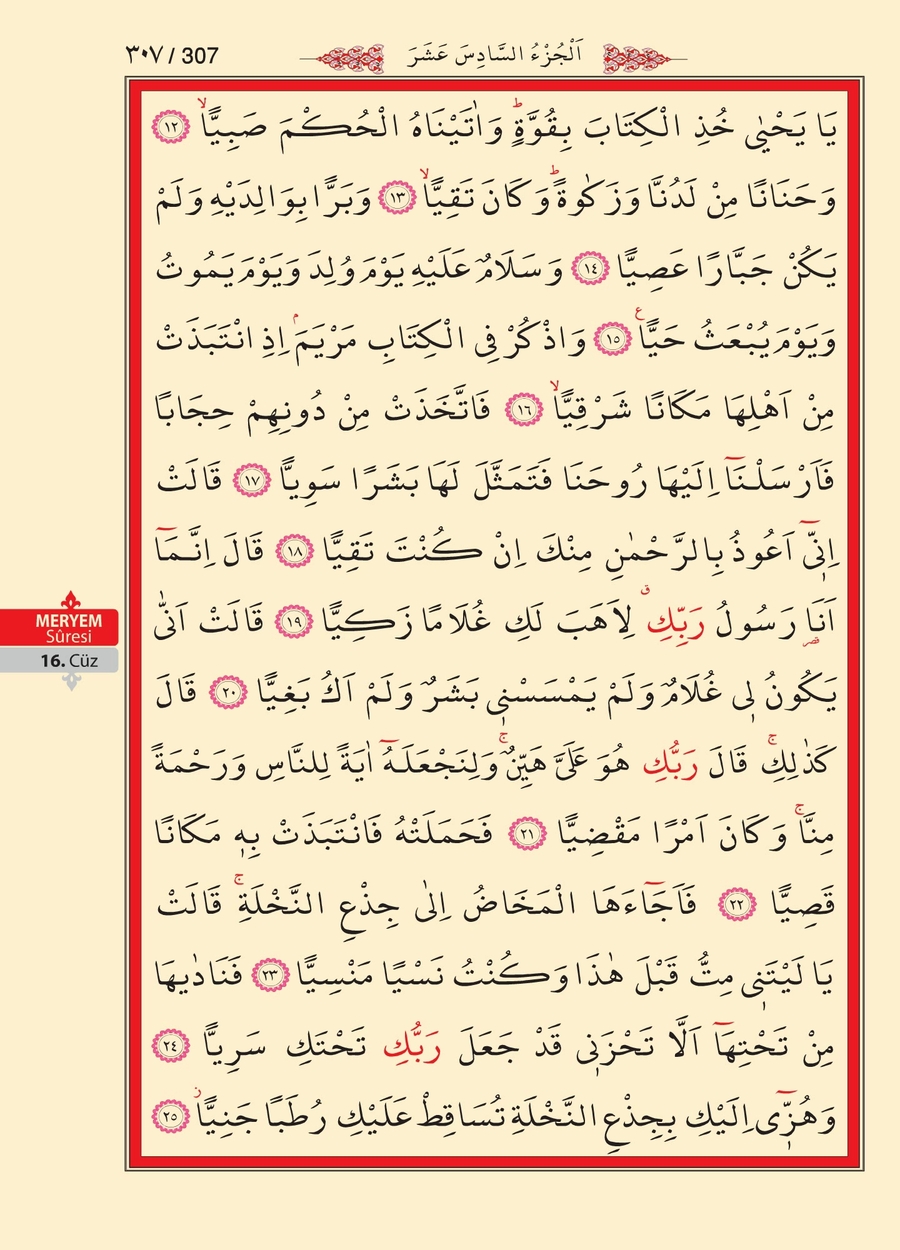 ٣٠٧ / 307
اَلْجُزْءُ السَّادِسَ عَشَرَ
يَا يَحْيٰى خُذِ الْكِتَابَ بِقُوَّةٍۜ وَاٰتَيْنَاهُ الْحُكْمَ صَبِيًّاۙ ﴿١٢﴾
وَحَنَانًا مِنْ لَدُنَّا وَزَكٰوةًۜ وَكَانَ تَقِيًّاۙ ﴿١٣﴾ وَبَرًّا بِوَالِدَيْهِ وَلَمْ
يَكُنْ جَبَّارًا عَصِيًّا ﴿١٤﴾ وَسَلَامٌ عَلَيْهِ يَوْمَ وُلِدَ وَيَوْمَ يَمُوتُ
وَيَوْمَ يُبْعَثُ حَيًّاࣖ ﴿١٥﴾ وَاذْكُرْ فِى الْكِتَابِ مَرْيَمَۢ اِذِ انْتَبَذَتْ
مِنْ اَهْلِهَا مَكَانًا شَرْقِيًّاۙ ﴿١٦﴾ فَاتَّخَذَتْ مِنْ دُونِهِمْ حِجَابًا
فَاَرْسَلْنَٓا اِلَيْهَا رُوحَنَا فَتَمَثَّلَ لَهَا بَشَرًا سَوِيًّا ﴿١٧﴾ قَالَتْ
اِنّ۪ٓى اَعُوذُ بِالرَّحْمٰنِ مِنْكَ اِنْ كُنْتَ تَقِيًّا ﴿١٨﴾ قَالَ اِنَّمَٓا
اَنَا۬ رَسُولُ رَبِّكِۗ لِاَهَبَ لَكِ غُلَامًا زَكِيًّا ﴿١٩﴾ قَالَتْ اَنّٰى
يَكُونُ ل۪ى غُلَامٌ وَلَمْ يَمْسَسْن۪ى بَشَرٌ وَلَمْ اَكُ بَغِيًّا ﴿٢٠﴾ قَالَ
كَذٰلِكِۚ قَالَ رَبُّكِ هُوَ عَلَىَّ هَيِّنٌۚ وَلِنَجْعَلَهُٓ اٰيَةً لِلنَّاسِ وَرَحْمَةً
مِنَّاۚ وَكَانَ اَمْرًا مَقْضِيًّا ﴿٢١﴾ فَحَمَلَتْهُ فَانْتَبَذَتْ بِه۪ مَكَانًا
قَصِيًّا ﴿٢٢﴾ فَاَجَٓاءَهَا الْمَخَاضُ اِلٰى جِذْعِ النَّخْلَةِۚ قَالَتْ
يَا لَيْتَن۪ى مِتُّ قَبْلَ هٰذَا وَكُنْتُ نَسْيًا مَنْسِيًّا ﴿٢٣﴾ فَنَادٰيهَا
مِنْ تَحْتِهَٓا اَلَّا تَحْزَن۪ى قَدْ جَعَلَ رَبُّكِ تَحْتَكِ سَرِيًّا ﴿٢٤﴾
وَهُزّ۪ٓى اِلَيْكِ بِجِذْعِ النَّخْلَةِ تُسَاقِطْ عَلَيْكِ رُطَبًا جَنِيًّاۘ ﴿٢٥﴾
MERYEM
Sûresi
16. Cüz